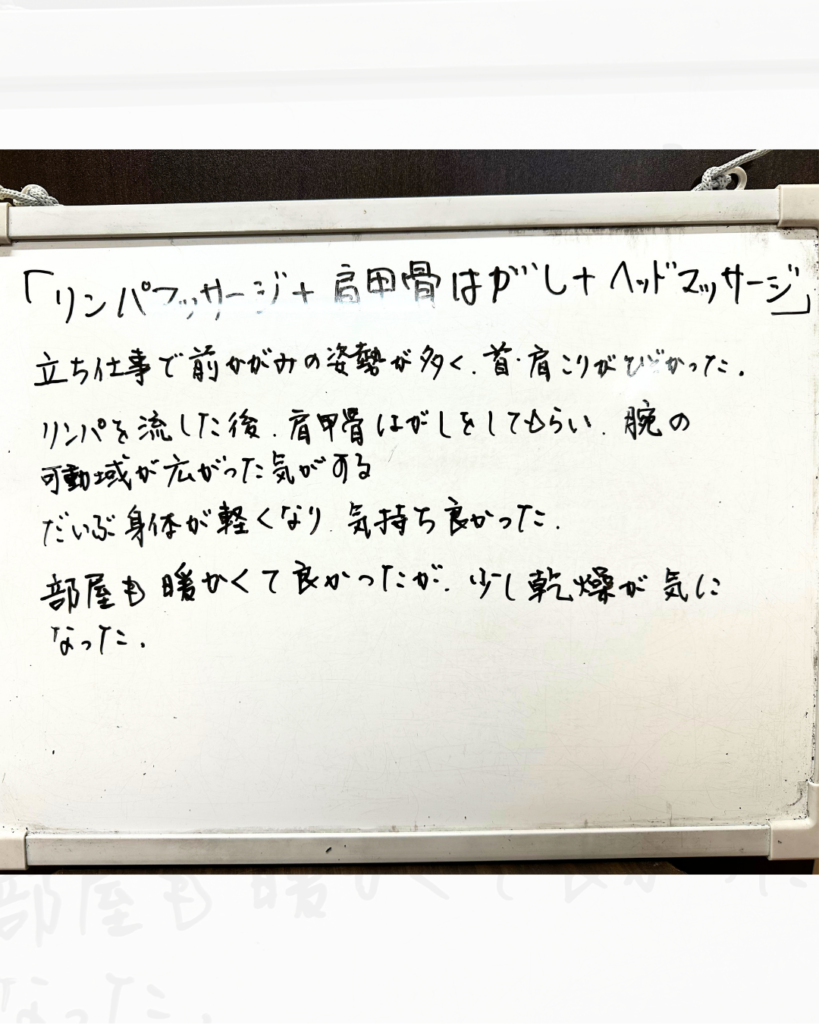 「リンパマッサージ+肩甲骨はがし+ヘッドマッサージ」
立ち仕事で前かがみの姿勢が多く、首・肩こりがひどかった。
リンパを流した後、肩甲骨はがしをしてもらい、腕の
可動域が広がった気がする
だいぶ身体が軽くなり、気持ち良かった。
部屋も暖かくて良かったが、少し乾燥が気に
なった。